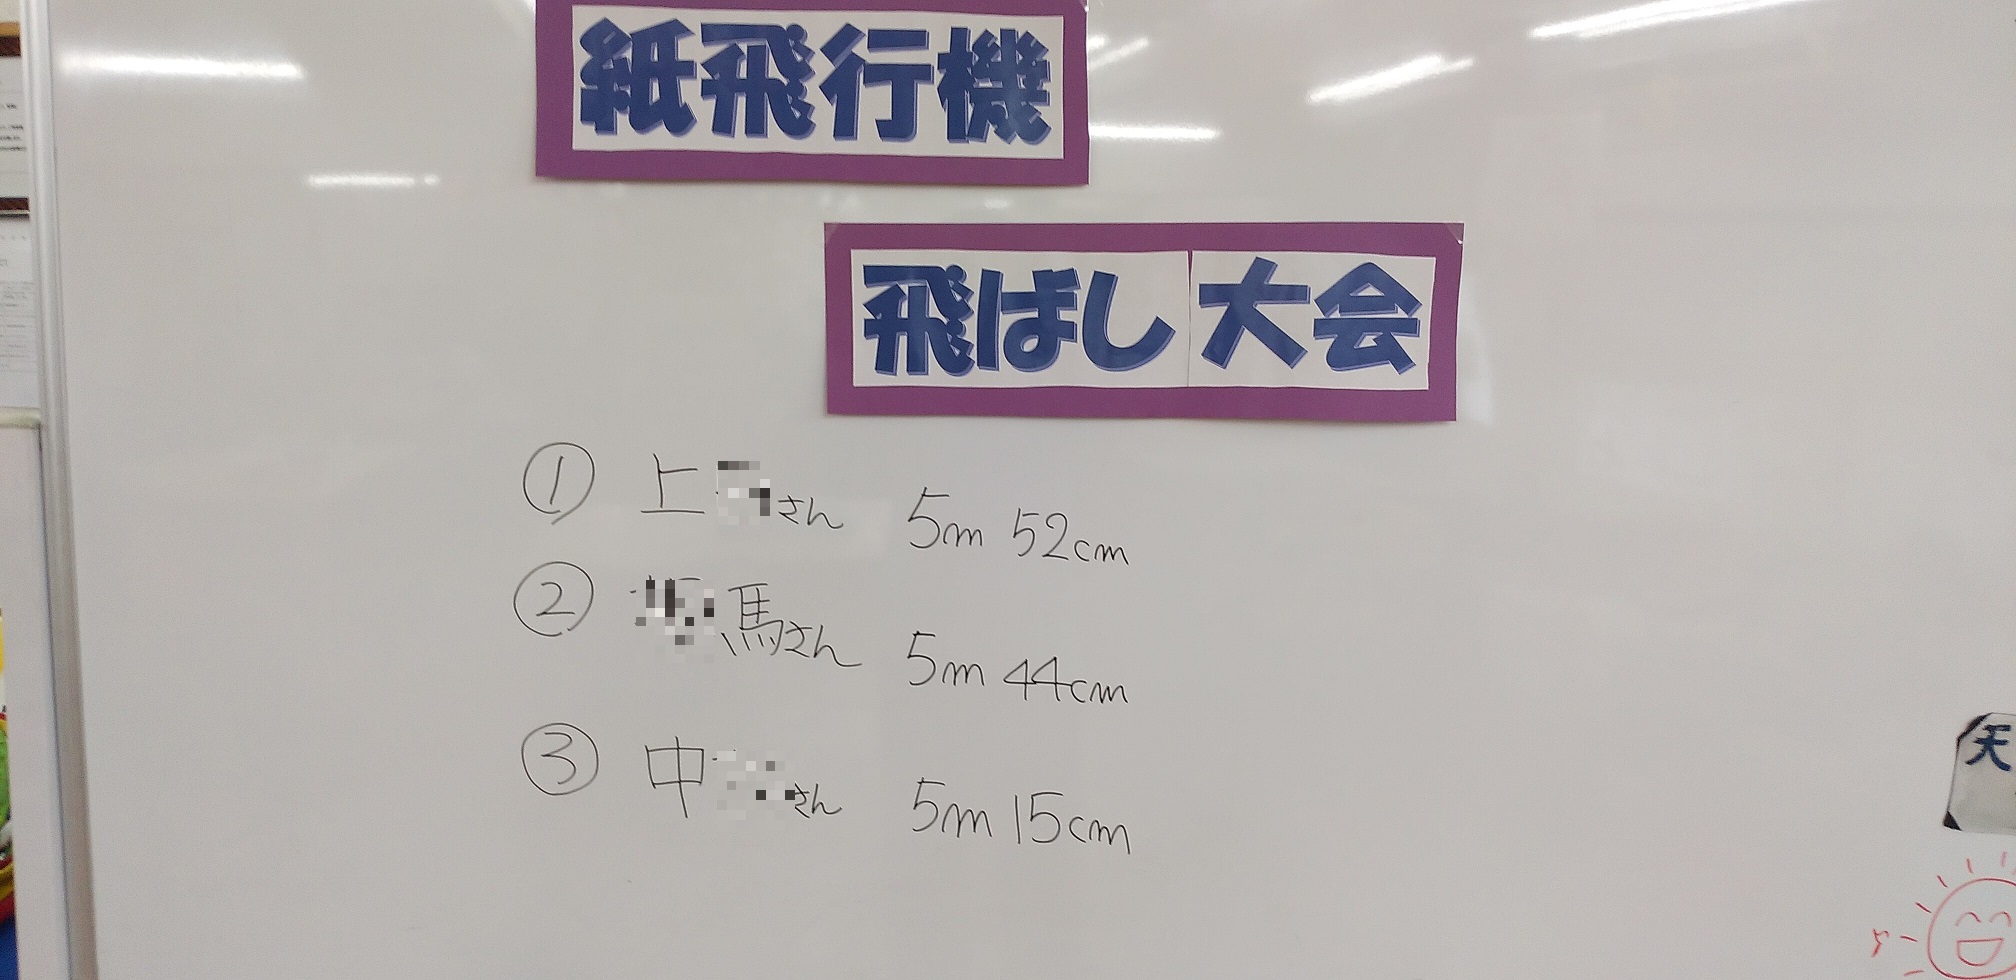 紙飛行機
飛ばし大会
① 上 さん 5m 52cm
② 馬さん 5m 44cm
③ 中 さん 5m 15cm
天